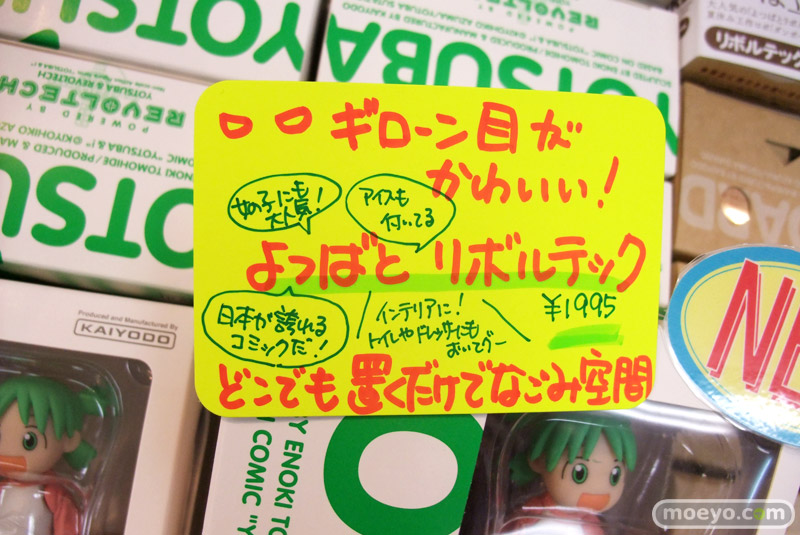 YOTSUBA
YOTSUBA
REVOLTECH
POWERED BY
REVOLTECH
YOTSUBA REVOLTECH
リボルテック
ギローン目が
かわいい!
女の子にも
大人気!
アイスも
付いてる
よつばと リボルテック
日本が誇れる
コミックだ!
インテリアに!
トイレやドレッサーにも
おいてグー
¥1995
どこでも置くだけでなごみ空間
Produced and Manufactured By
KAIYODO
NE
moeyo.com